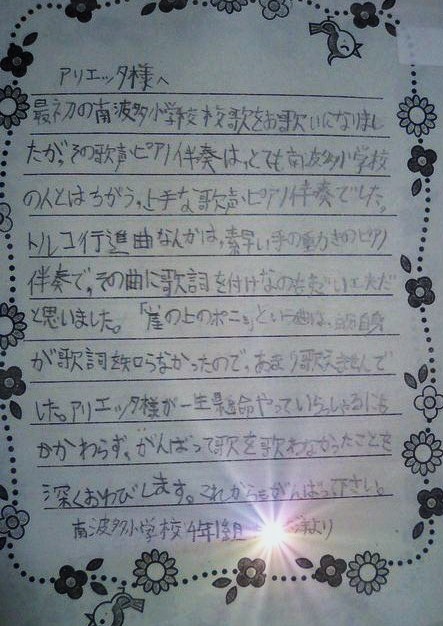 アリエッタ様へ
最初の南波多小学校校歌をお歌いになりまし
たが、その歌声、ピアノ伴奏は、とても南波多小学校
の人とはちがう、上手な歌声、ピアノ伴奏でした。
トルコ行進曲なんかは、素早い手の動きのピアノ
伴奏で、その曲に歌詞を付けなの
と思いました。「崖の上のポニョ」という曲は、自分自身
が歌詞を知らなかったので、あまり歌えませんで
した。アリエッタ様が一生懸命やっていらっしゃるにも
かかわらず、がんばって歌を歌わなかったことを
深くおわびします。これからもがんばって下さい。
南波多小学校4年1組 より